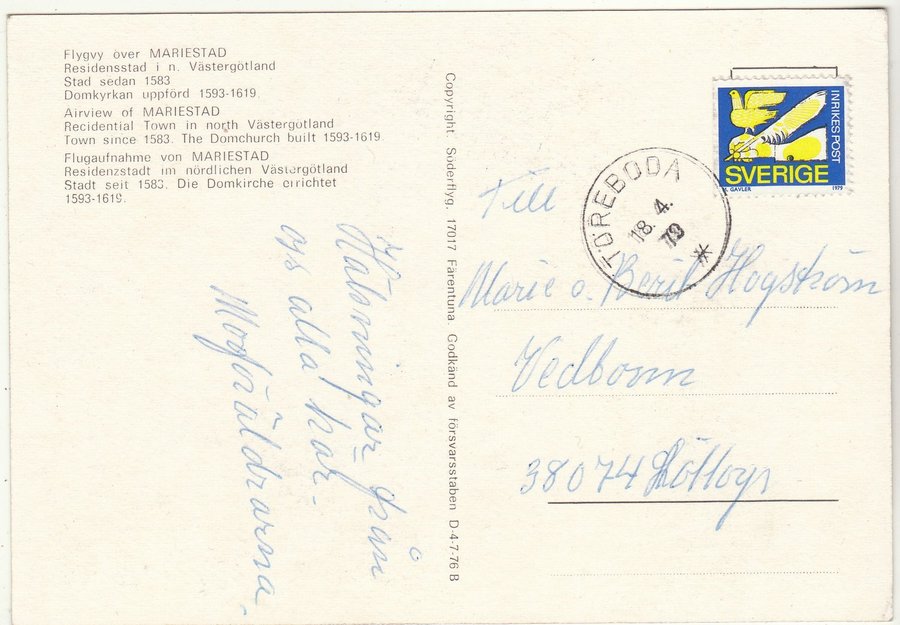 Flygvy över MARIESTAD
Residensstad i n. Västergötland
Stad sedan 1583
Domkyrkan uppförd 1593-1619.
Airview of MARIESTAD
Recidential Town in north Västergötland
Town since 1583. The Domchurch built 1593-1619
Flugaufnahme von MARIESTAD
Residenzstadt im nördlichen Västergötland
Stadt seit 1583. Die Domkirche errichtet
1593-1619.
Hälsningar från
oss alla här.
Morföräldrarna.
Copyright Söderflyg, 17017 Färentuna. Godkänd av försvarsstaben D-4-7-76 B
INRIKES POST
SVERIGE
GAVLER 1979
TÖREBODA
18. 4. 79
Till
Marie o. Beril Hogström
Vedborm
38074 Löttorp